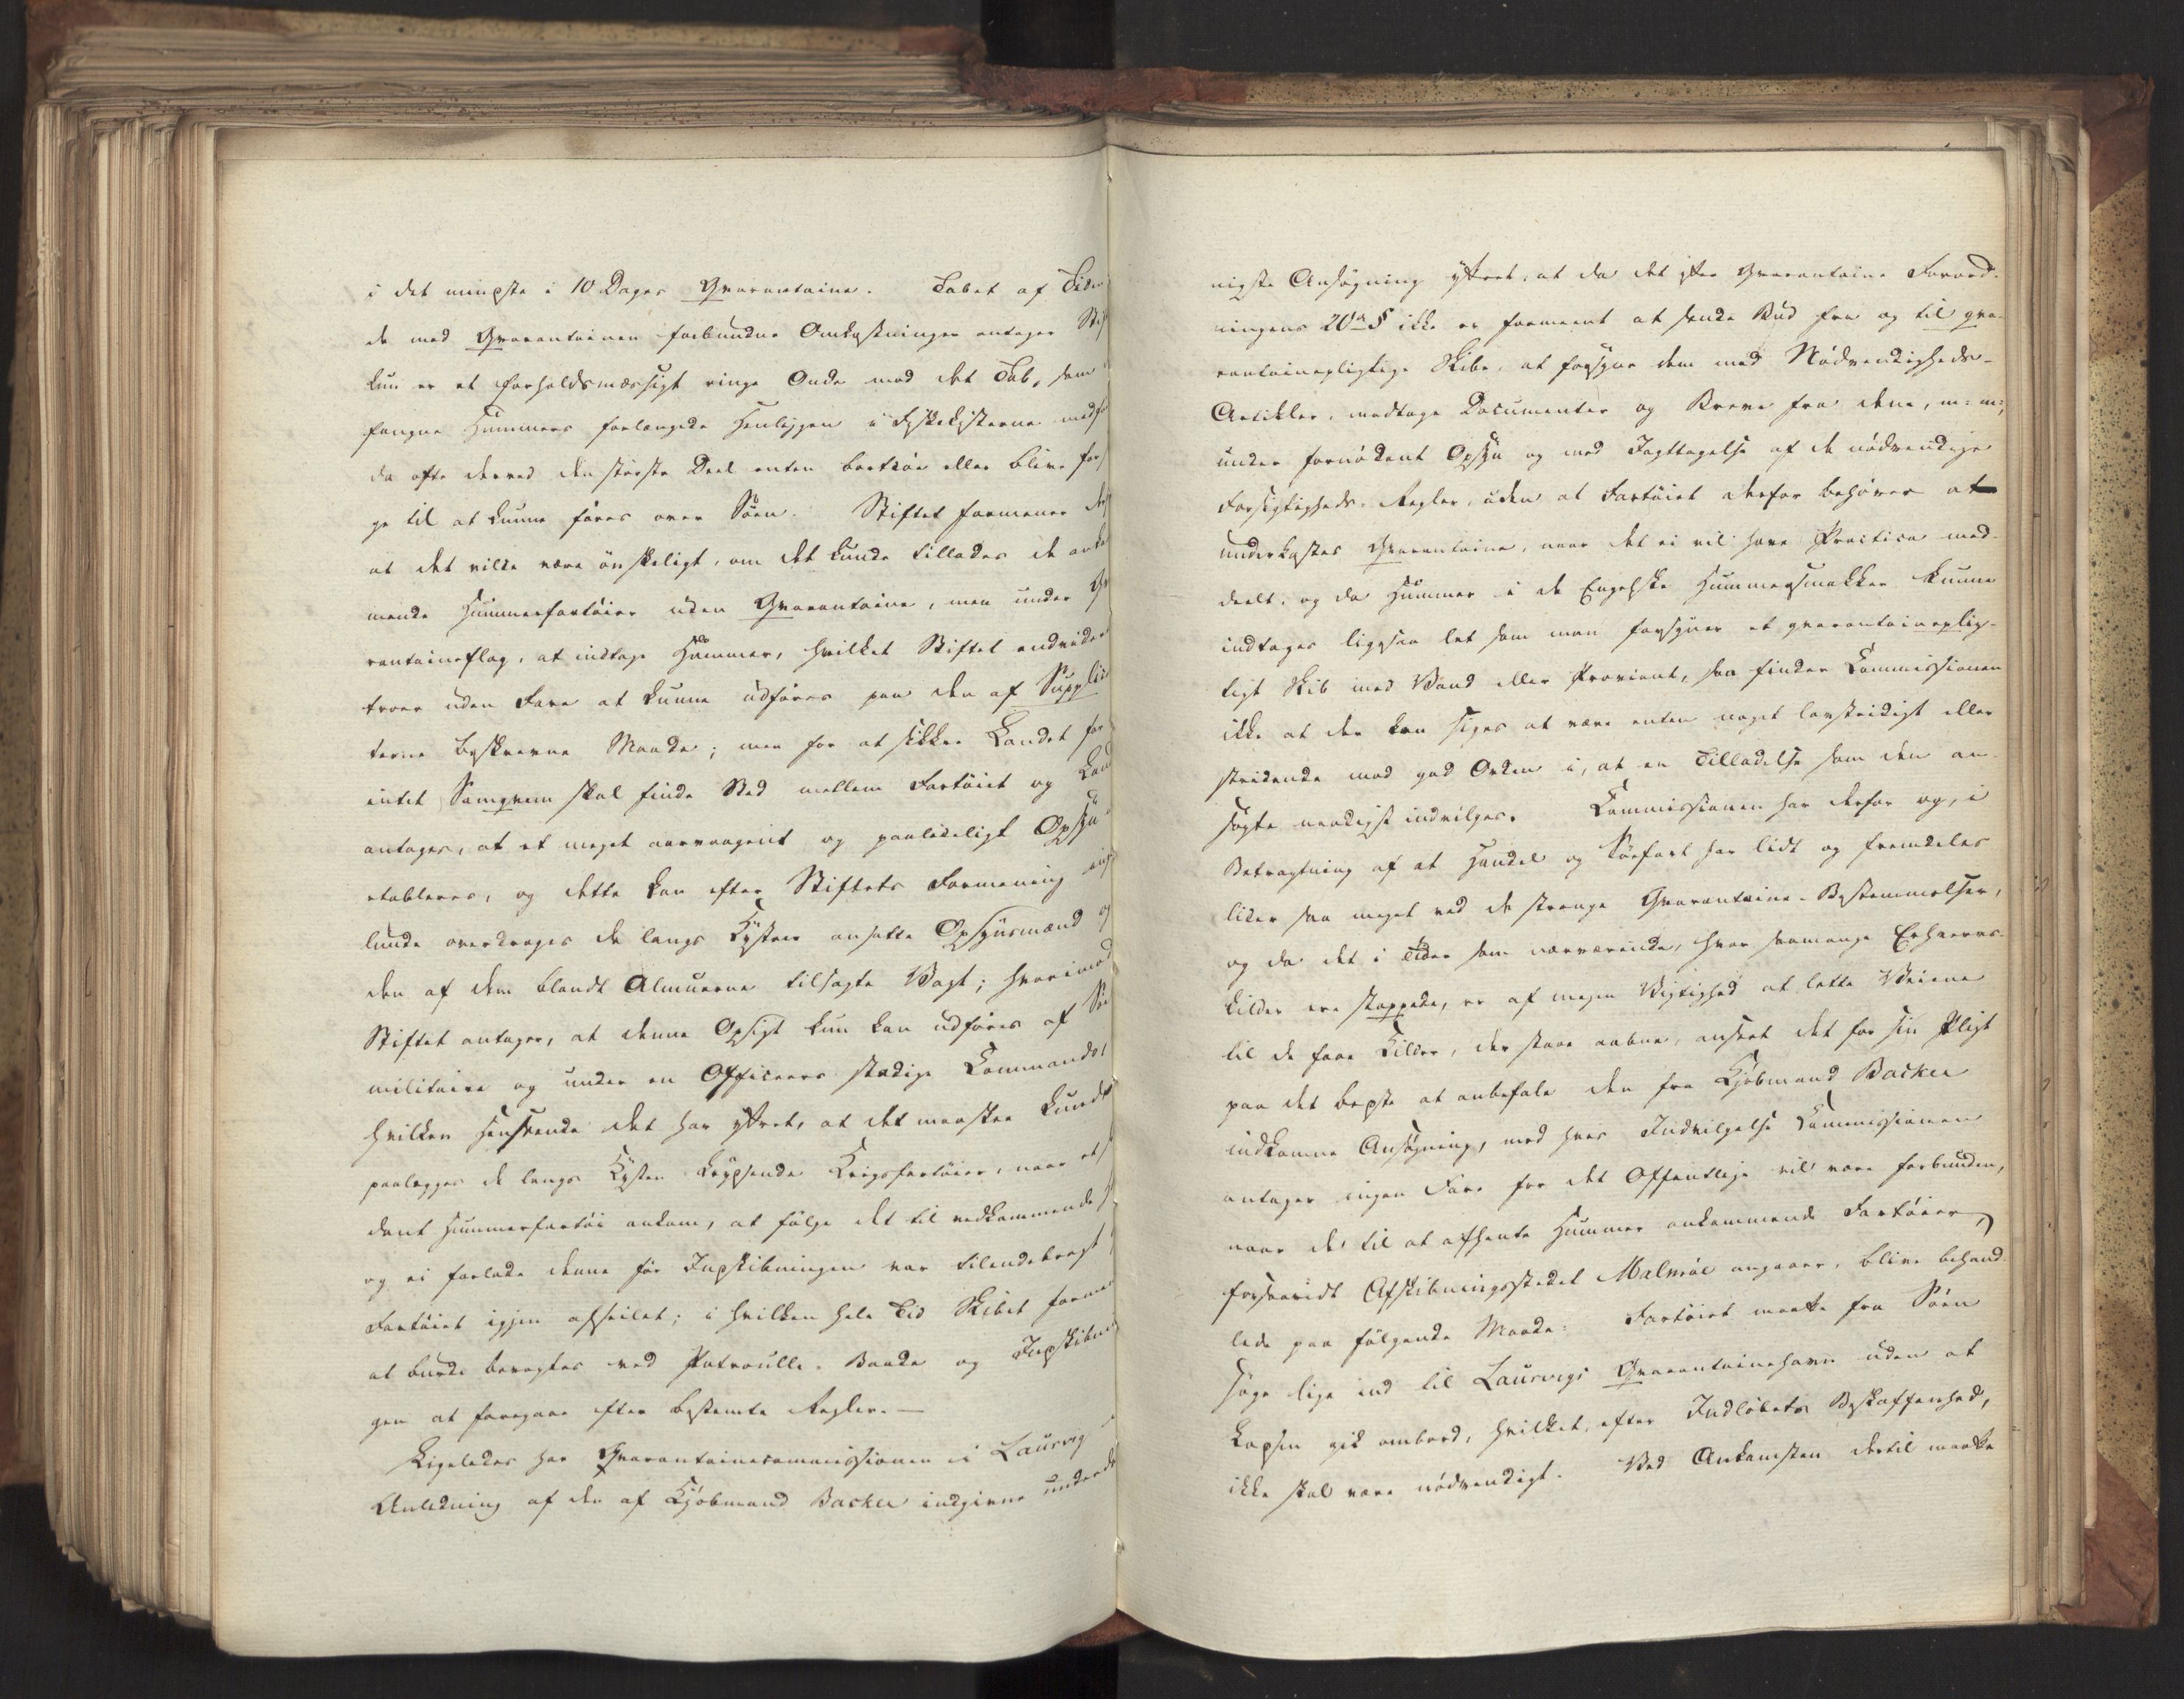 i det mindste i 10 Dages Qvarantaine. Tabet af Tiden
de med Qvarantainen forbundne Omkostninger antager Stif
kun er et forholdsmæssigt ringe Onde mod det Tab, som
fangne Hummers forlængede Henliggen i Fiskekisterne medfø
da ofte derved den største Deel enten bortdøe eller blive for
ge til at kunne føres over Søen. Stiftet formener de
at det vilde være ønskeligt, om det kunde tillades de anko
mende Hummerfartøier uden Qvarantaine, men under Qv
rantaineflag, at indtage Hummer, hvilket Stiftet endvidere
troer uden Fare at kunne udføres paa den af Supplic
terne beskrevne Maade; men for at sikkre Landet for
intet Samqvem skal finde Sted mellem Fartøiet og Land
antages, at et meget aarvaagent og paalideligt Opsyn
etableres, og dette kan efter Stiftets Formening
lunde overdrages de langs Kysten ansatte Opsynsmænd og
den af dem blandt Almuerne tilsagte Vagt; hvorimod
Stiftet antager, at denne Opsigt kun kan udføres af
militaire og under en Officeers stadige Commando,
hvilken Henseende det har yttret, at det maaskee kunde
paalægges de langs Kysten krydsende Krigsfartøier, naar et
dant Hummerfartøi ankom, at følge det til vedkommende
og ei forlade denne før Indskibningen var tilendebragt
Fartøiet igjen afseilet; i hvilken hele Tid Skibet forme
at burde bevogtes ved Patrouille-Baade og Indskibnin
gen at foregaae efter bestemte Regler.—
Ligeledes har Qvarantainecommissionen i Laurvig
Anledning af den af Kjøbmand Backer indgivne underda
nigste Ansøgning yttret, at da det efter Qvarantaine Forord-
ningens 20de § ikke er formeent at sende Bud fra og til qva-
rantainepligtige Skibe, at forsyne dem med Nødvendigheds-
Artikler, modtage Documenter og Breve fra dem, m: m:,
under fornødent Opsyn og med Iagttagelse af de nødvendige
Forsigtigheds-Regler, uden at Fartøiet derfor behøver at
underkastes Qvarantaine, naar det ei vil have Practica med-
deelt, og da Hummer i de Engelske Hummersmakker kunne
indtages ligesaa let som man forsyner et qvarantaineplig-
tigt Skib med Vand eller Proviant, saa finder Commissionen
ikke at der kan siges at være enten noget lovstridigt eller
stridende mod god Orden i, at en Tilladelse som den an-
søgte naadigst indvilges. Commissionen har derfor og, i
Betragtning af at Handel og Søefart har lidt og fremdeles
lider saa meget ved de strenge Qvarantaine-Bestemmelser,
og da det i Tider som nærværende, hvor saamange Erhvervs-
kilder ere stoppede, er af megen Vigtighed at lette Veiene
til de faae Kilder, der staae aabne, anseet det for sin Pligt
paa det bedste at anbefale den fra Kjøbmand Backer
indkomne Ansøgning, med hvis Indvilgelse Commissionen
antager ingen Fare for det Offentlige vil være forbunden,
naar de til at afhente Hummer ankommende Fartøier,
forsaavidt Afskibningsstedet Malmøe angaaer, blive behand-
lede paa følgende Maade: Fartøiet maatte fra Søen
søge lige ind til Laurvigs Qvarantainehavn uden at
Lodsen gik ombord, hvilket, efter Indløbets Beskaffenhed,
ikke skal være nødvendigt. Ved Ankomsten dertil maatte